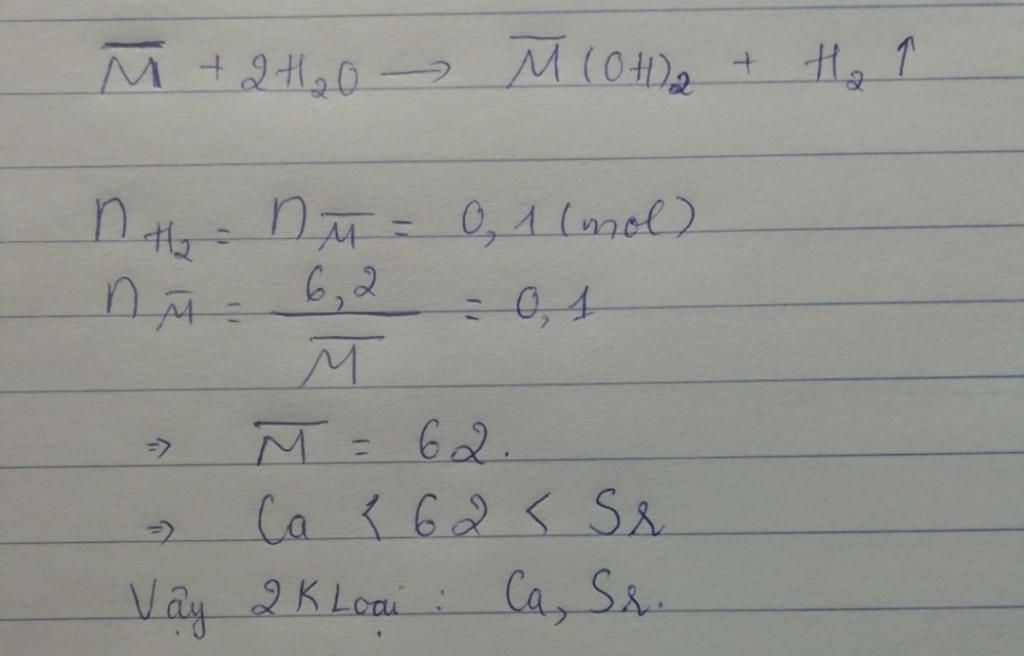 M̅ + 2H₂O → M̅(OH)₂ + H₂ ↑
n H₂ = n M̅ = 0,1 (mol)
n M̅ = 6,2 / M̅ = 0,1
⇒ M̅ = 62.
⇒ Ca < 62 < Sr
Vậy 2 K Loại : Ca, Sr.